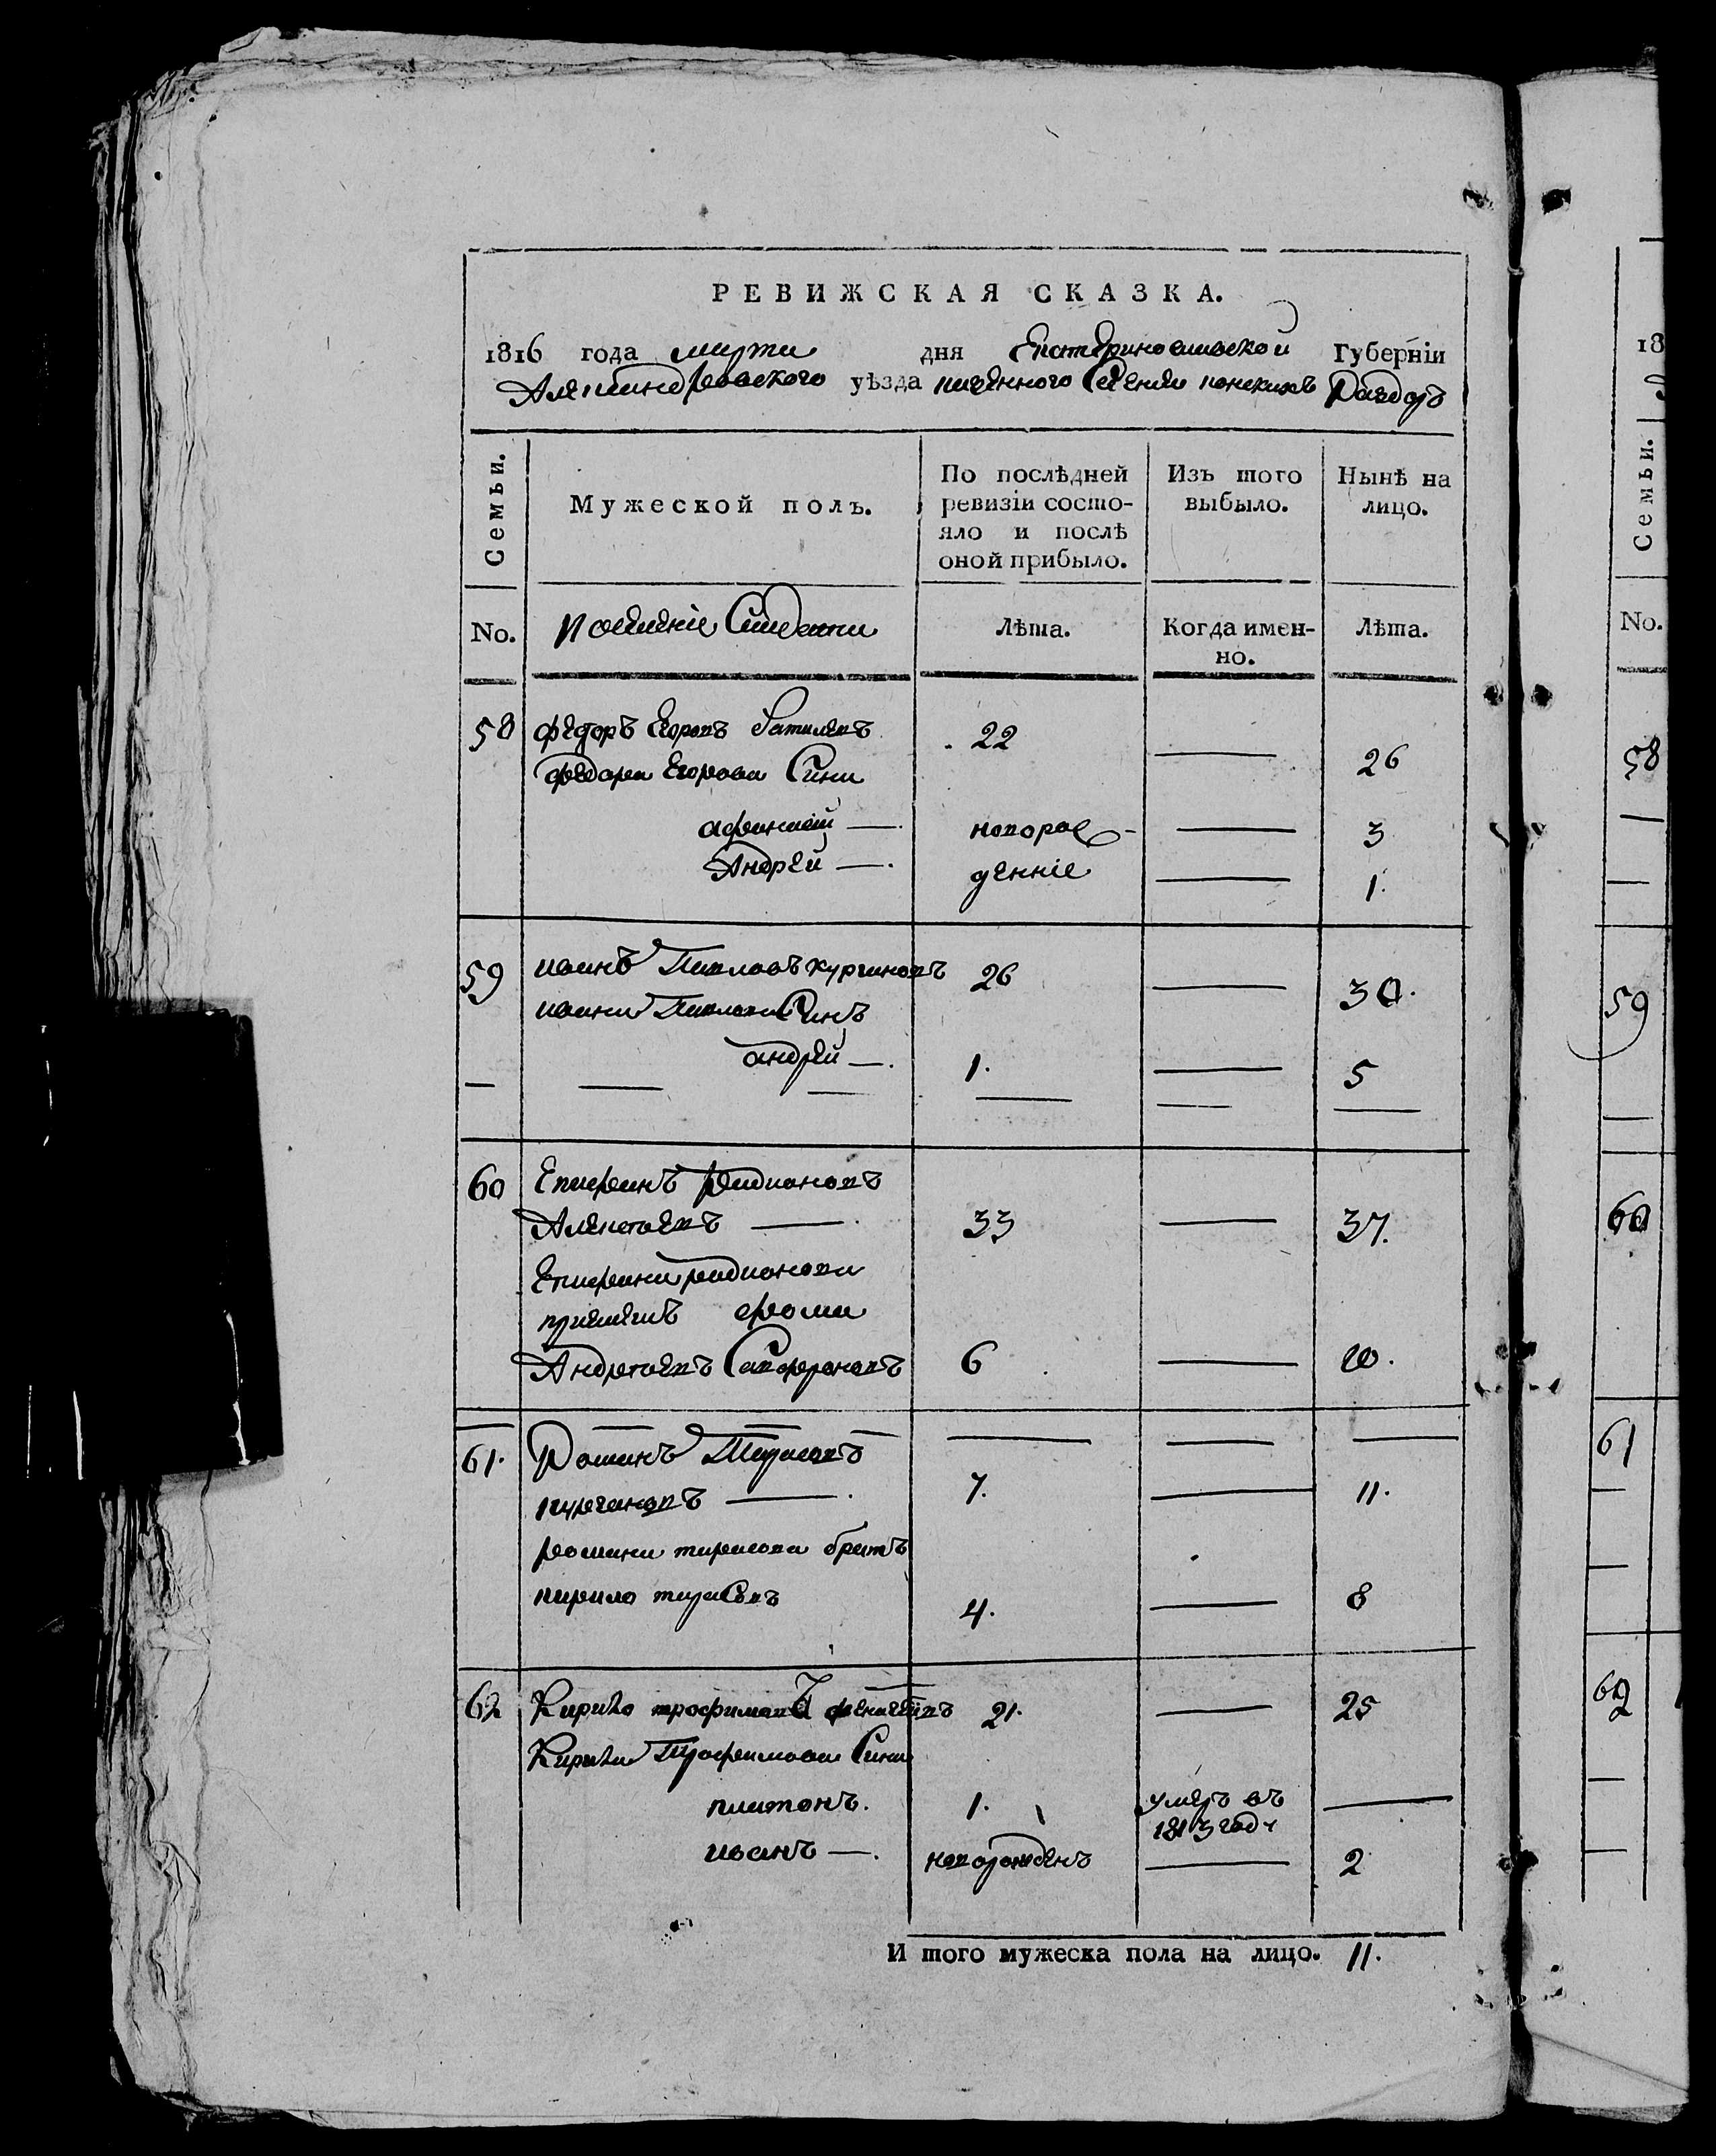 РЕВИЖСКАЯ СКАЗКА.
1816 года марта дня Екатеринославской Губерніи
Александровского уѣзда казенного Селения конскихъ Раздоръ
Семьи.
Мужеской полъ.
По послѣдней ревизіи состо-
яло и послѣ
оной прибыло.
Изъ того
выбыло.
Нынѣ на
лицо.
No.
Лѣта.
Когда имен-
но.
Лѣта.
58 федоръ Егоровъ 22
федора Егорова Сини — 26
афанасій — неворож- — 3
Андрей — денніе — 1.
59 иванъ Павловъ кургановъ 26 — 30.
ивана Павлова Синъ
андрей — 1. — 5
60 Епифанъ радионовъ
Алексѣевъ — 33 — 37.
Епифана радионова
приемишъ фома
Андрѣевъ Сафроновъ 6 — 10.
61. Романъ Тарасовъ
кургановъ — 7. — 11.
романа тарасова братъ
кирило тарасовъ 4. — 8
62 Кирило трофимовъ 21. — 25
Кирила Трофимова Сини
платонъ. 1. умеръ въ —
1813 году
иванъ — неворожденъ — 2
И того мужеска пола на лицо. 11.
18
Семьи.
No.
58
59
60
61
62